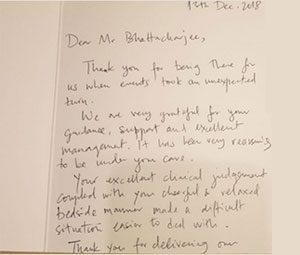 13th Dec. 2018
Dear Mr Bhattacharjee,
Thank you for being There for
us when events took an unexpected
turn.
We are very grateful for your
guidance, support and excellent
management. It has been very reassuring
to be under your care.
Your excellent clinical judgement
coupled with your cheerful & relaxed
bedside manner made a difficult
situation easier to deal with.
Thank you for delivering our